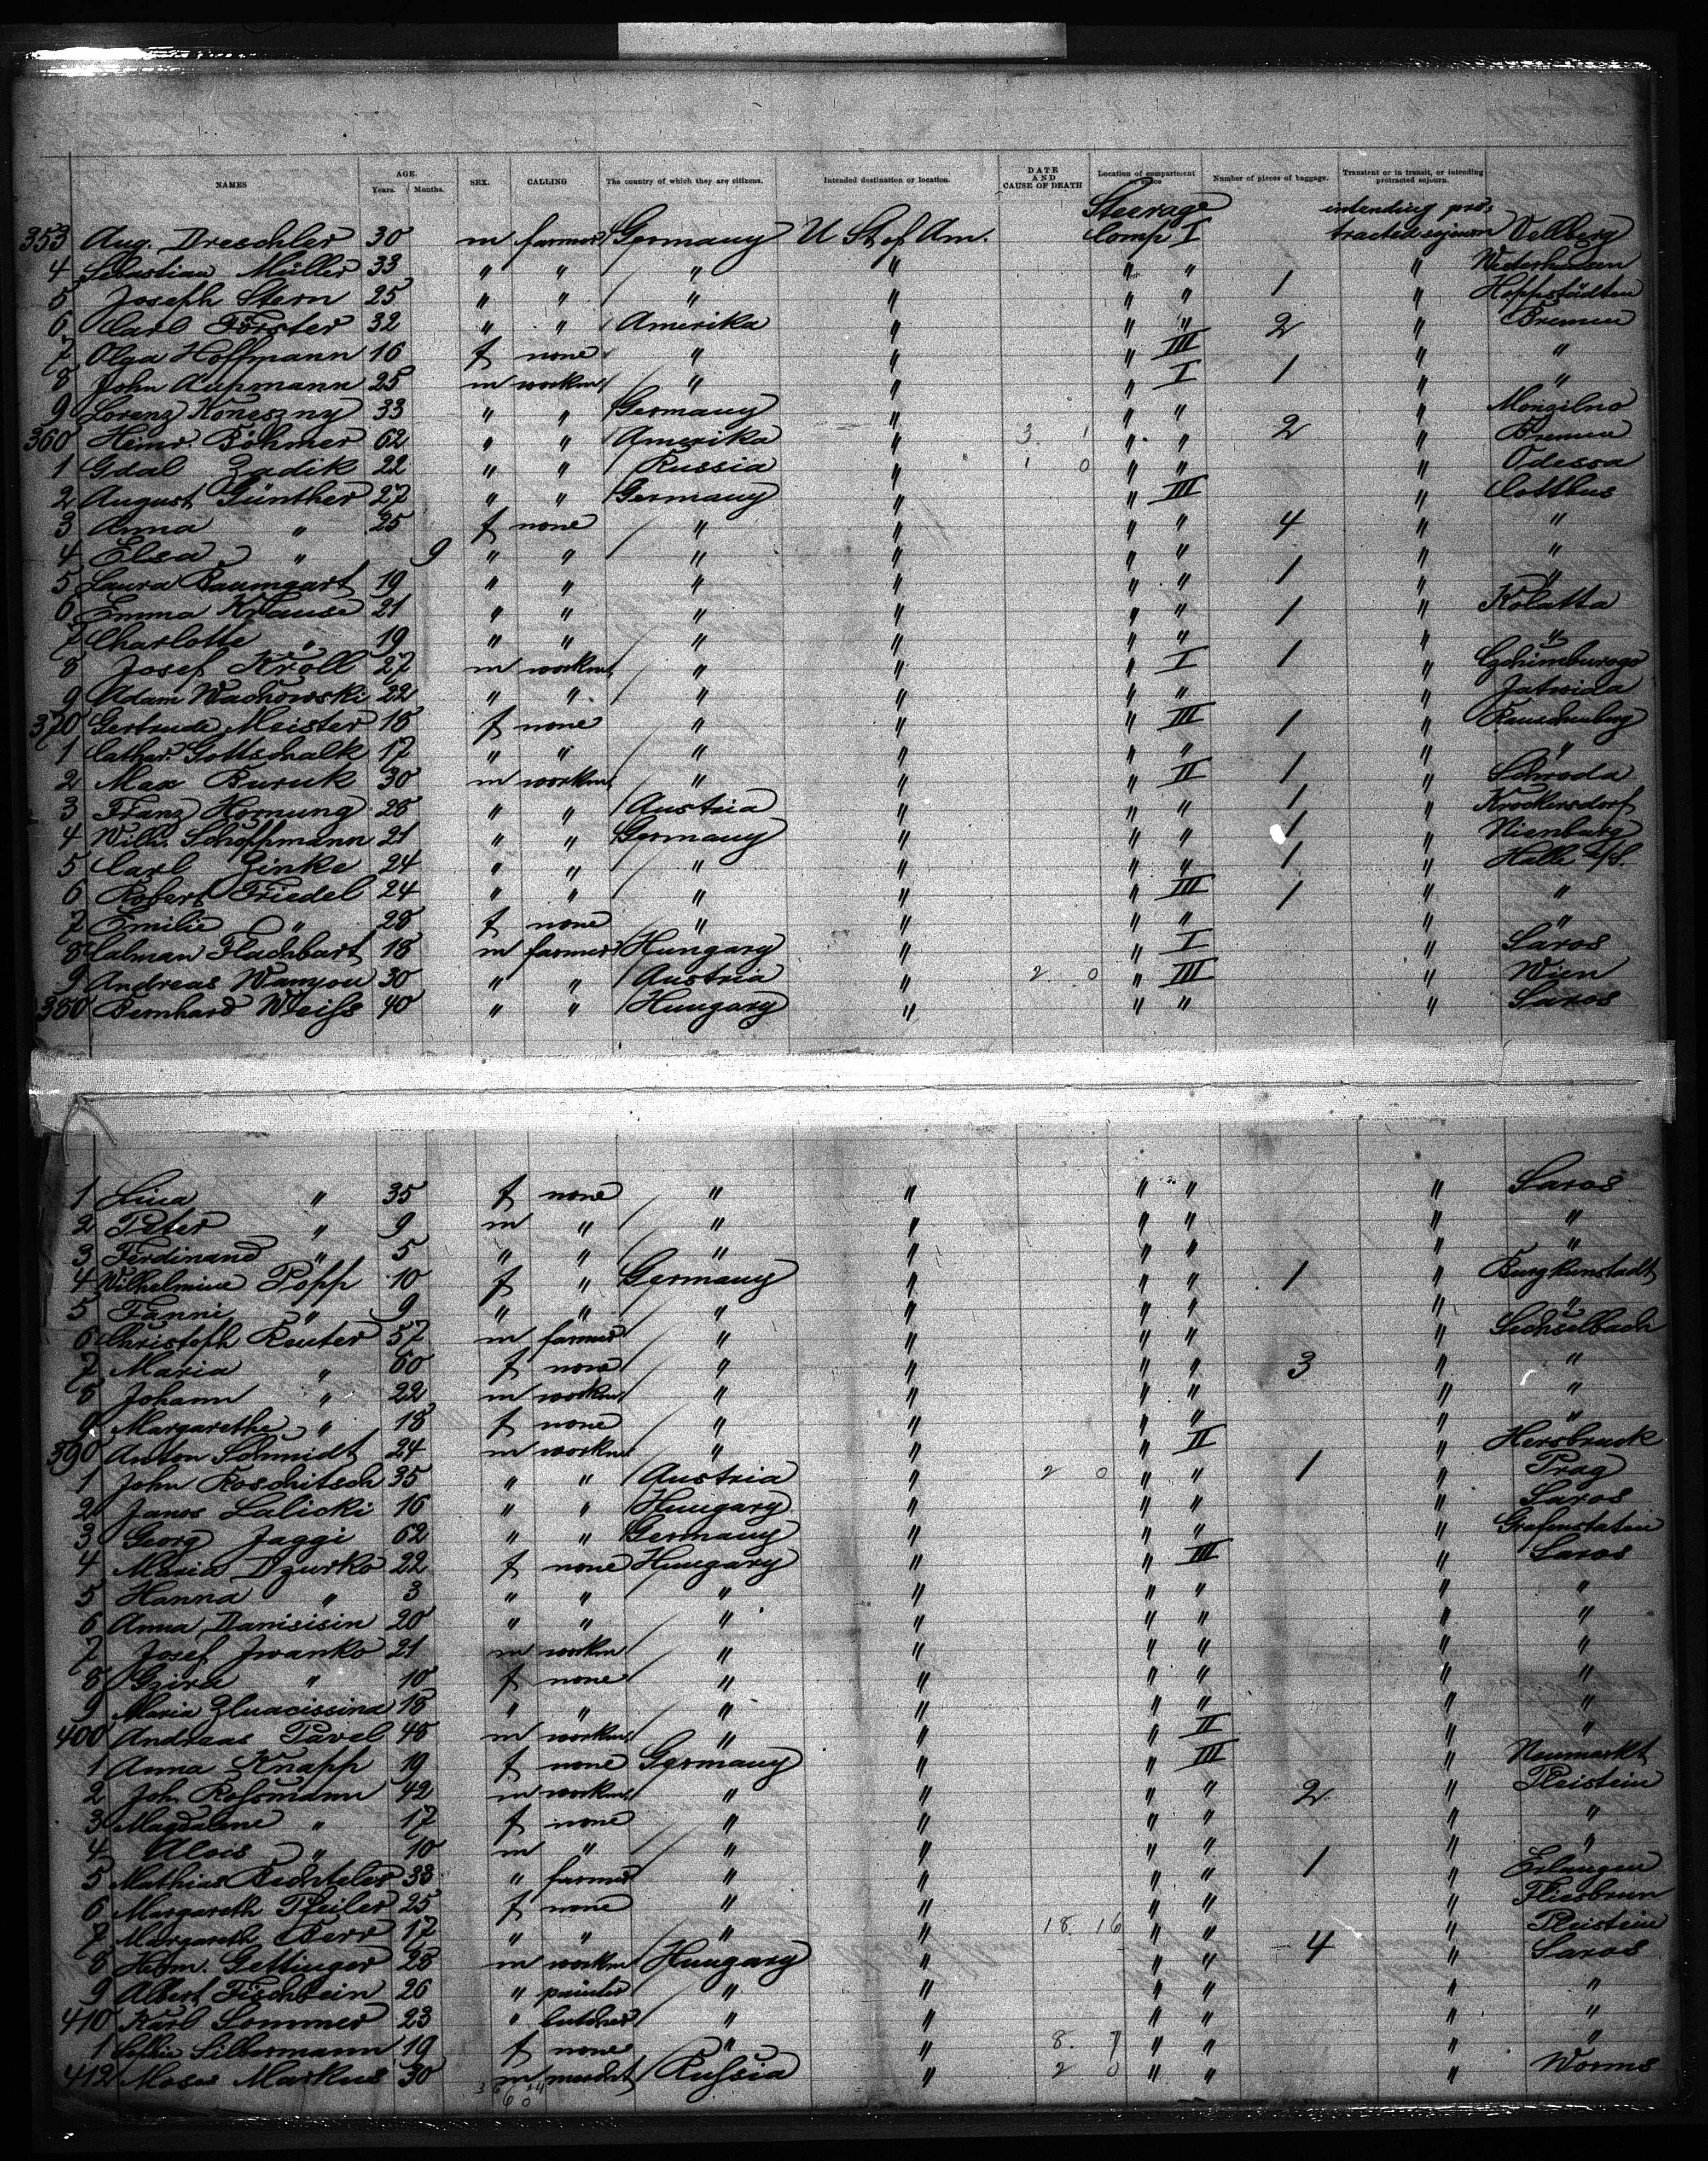 NAMES AGE. Years. Months. SEX. CALLING The country of which they are citizens. Intended destination or location. DATE AND CAUSE OF DEATH Location of compartment Number of pieces of baggage. Transient or in transit, or intending protracted sojourn.
Steerage intending pro-
353 Aug. Dreschler 30 m farmer Germany U St of Am. Comp I tracted sojourn Vellberg
4 Sebastian Müller 33 " " " " " " "
5 Joseph Stern 25 " " " " " " 1 " Hoppstädten
6 Carl Förster 32 " " Amerika " " " 2 " Bremen
7 Olga Hoffmann 16 f none " " " III " "
8 John Aupmann 25 m workm " " " I 1 " "
9 Lorenz Koneszny 33 " " Germany " " " " Monzilno
360 Heinr. Böhmer 62 " " Amerika " 3. 1 " " 2 " Bremen
1 Gdal Zadik 22 " " Russia " 1 0 " " " Odessa
2 August Günther 27 " " Germany " " III " Cottbus
3 Anna " 25 f none " " " " 4 " "
4 Elsa " 9 " " " " " " " "
5 Laura Baumgart 19 " " " " " " 1 " "
6 Emma Krause 21 " " " " " " 1 " Kolatta
7 Charlotte " 19 " " " " " " " "
8 Josef Kroll 27 m workm " " " I 1 "
9 Adam Wachowski 22 " " " " " " " Jatwida
370 Gertrude Meister 18 f none " " " III 1 "
1 Cathar. Gottschalk 17 " " " " " " " "
2 Max Buruk 30 m workm " " " II 1 " Schroda
3 Franz Hornung 28 " " Austria " " " 1 " Krockersdorf
4 Wilh. Schöffmann 21 " " Germany " " " 1 " Nienburg
5 Carl Zinke 24 " " " " " " 1 " Halle a/S.
6 Robert Friedel 24 " " " " " III 1 " "
7 Emilie " 28 f none " " " " " "
8 Calman Flachbart 18 m farmer Hungary " " I " Saros
9 Andreas Wanyou 30 " " Austria " 2. 0 " III " Wien
380 Bernhard Weiss 40 " " Hungary " " " " Saros
1 Lina " 35 f none " " " " " Saros
2 Peter " 9 m " " " " " " "
3 Ferdinand " 5 " " " " " " " "
4 Wilhelmine Popp 10 f " Germany " " " 1 " Burgkunstadt
5 Fanni " 9 " " " " " " " "
6 Christoph Reuter 57 m farmer " " " " " Sechselbach
7 Maria " 60 f none " " " " 3 " "
8 Johann " 22 m workm " " " " " "
9 Margarethe " 18 f none " " " " " "
390 Anton Schmidt 24 m workm " " " II " Hersbruck
1 John Koschitsch 35 " " Austria " 2 0 " " 1 " Prag
2 Janos Lalicki 16 " " Hungary " " " " Saros
3 Georg Jaggi 62 " " Germany " " " " Grafenstaten
4 Maria Dzurko 22 f none Hungary " " III " Saros
5 Hanna " 3 " " " " " " " "
6 Anna Danisisin 20 " " " " " " " "
7 Josef Iwanko 21 m workm " " " " " "
8 " 10 f none " " " " " "
9 Maria Zluacissina 18 " " " " " " " "
400 Andreas Pavel 45 m workm " " " II " "
1 Anna Knapp 19 f none Germany " " III " Neumarkt
2 Joh. Rossmann 42 m workm " " " " 2 " Pleistein
3 Magdalene " 17 f none " " " " " "
4 Alois " 10 m " " " " " " "
5 Mathias Bechteler 33 " farmer " " " " 1 " Erlangen
6 Margareth Pfeiler 25 f none " " " " " Fliesbrun
7 Margareth Berr 17 " " " " 18. 16 " " " Pleistein
8 Herm. Gettinger 28 m workm Hungary " " " 4 " Saros
9 Albert Fischbein 26 " painter " " " " " "
410 Karl Sommer 23 " butcher " " " " " "
1 Sofie Silbermann 19 f none " " 8. 7 " " " "
412 Moses Markus 30 m mercht Russia " 2 0 " " " Worms